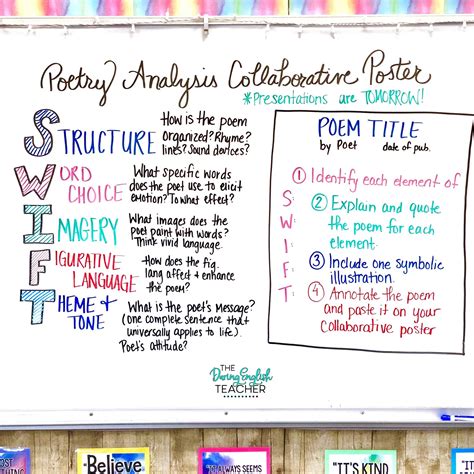 Poetry Analysis Collaborative Poster
*Presentations are TOMORROW!
STRUCTURE
How is the poem
organized? Rhyme?
lines? Sound devices?
WORD
CHOICE
What specific words
does the poet use to elicit
emotion? To what effect?
IMAGERY
What images does the
poet paint with words?
Think vivid language.
FIGURATIVE
LANGUAGE
How does the fig.
lang affect & enhance
the poem?
THEME &
TONE
What is the poet's Message?
(one complete sentence that
universally applies to life).
Poet's attitude?
POEM TITLE
by Poet date of pub.
① Identify each element of
S
W
I
F
T:
② Explain and quote
the poem for each
element.
③ Include one symbolic
illustration.
④ Annotate the poem
and paste it on your
Collaborative poster
THE
Daring English
TEACHER
"Believe
"IT ALWAYS SEEMS
"IT'S KIND